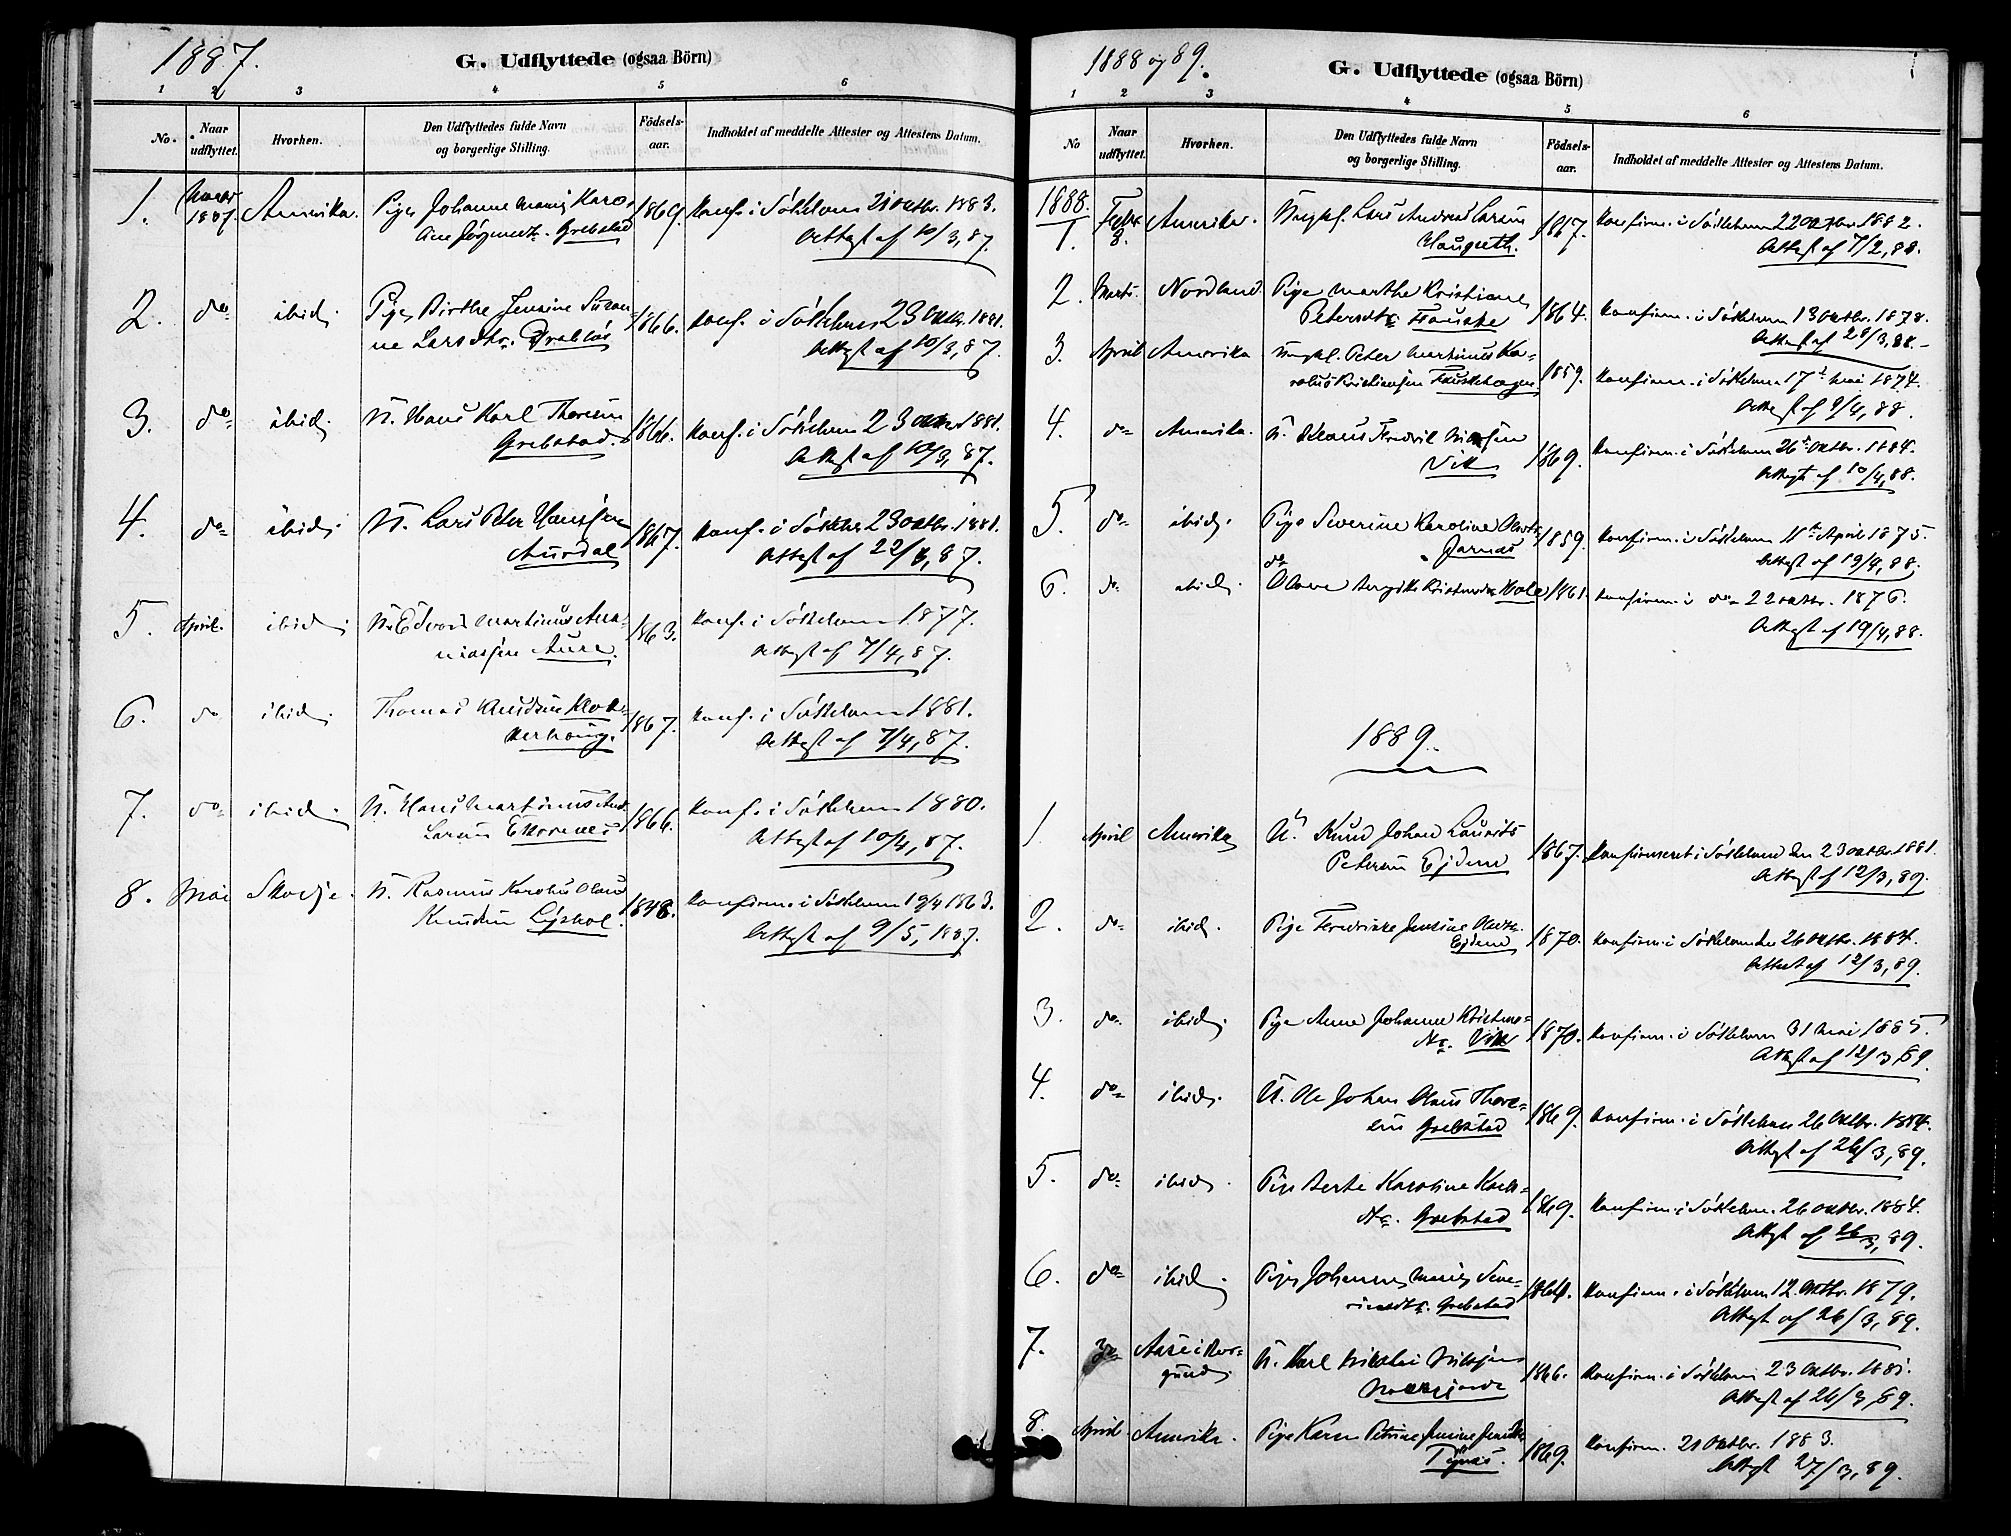 1887.
G. Udflyttede (ogsaa Börn)
1 2 3 4 5 6
No. Naar udflyttet. Hvorhen. Den Udflyttedes fulde Navn og borgerlige Stilling. Födselsaar. Indholdet af meddelte Attester og Attestens Datum.
1. 1887. Amerika. Pige Johanne Marie Karo- 1869. Konf. i Søkkelven 21 oktbr. 1883.
Grebstad Attest af 10/3, 87.
2. do ibid. Pige Birthe Jensine Susan- 1866. Konf. i Søkkelven 23 oktbr. 1881.
ne Larsdtr. Drabløs Attest af 10/3, 87.
3. do ibid. U. Hans Karl Thoresen 1866. Konf. i Søkkelven 23 oktbr 1881.
Grebstad. Attest af 10/3, 87.
4. do ibid. U. Lars Peter Hanssen 1867. Konf. i Søkkelven 23 oktbr. 1881.
Aursdal Attest af 22/3, 87.
5. April. ibid. U. Edvard Martinus Ana- 1863. Konf. i Søkkelven 1877.
niassen Aure. Attest af 7/4, 87.
6. do ibid. Thomas Knudsen Klok- 1867. Konf. i Søkkelven 1881.
kerhaug. Attest af 7/4, 87.
7. do ibid. U. Hans Martinus And. 1866. Konf. i Søkkelven 1880.
Larsen Ekornes Attest af 10/4, 87.
8. Mai Skodje. U. Rasmus Karolus Olaus 1848. Konfirm. i Søkkelven 19/4 1863.
Knudsen Lyshol. Attest af 9/5, 1887.
1888 og 89.
G. Udflyttede (ogsaa Börn)
1 2 3 4 5 6
No Naar udflyttet. Hvorhen. Den Udflyttedes fulde Navn og borgerlige Stilling. Födselsaar. Indholdet af meddelte Attester og Attestens Datum.
1888.
1. Febr. 8. Amerika. Ungkl. Lars Andreas Larsen 1867. Konfirm. i Søkkelven 22 oktbr. 1882.
Haugseth. Attest af 7/2, 88.
2. Marts. Nordland. Pige Marthe Kristiane 1864. Konfirm. i Søkkelven 13 oktbr. 1878.
Petersdtr. Fauske Attest af 28/3, 88.
3. April Amerika Ungkl. Peter Martinus Ka- 1859. Konfirm. i Søkkelven 17de Mai 1874.
rolus Kristiansen Fauskehagen. Attest af 9/4, 88.
4. do Amerika. U. Klaus Fredrik Nilssen 1869. Konfirm. i Søkkelven 26de oktbr. 1884.
Vik Attest af 10/4, 88.
5. do ibid. Pige Severine Karoline Olsdtr. 1859. Konfirm. i Søkkelven 11te April 1875.
Jarnæs Attest af 19/4, 88.
6. do ibid. do Olave Kristensdtr Hole 1861. Konfirm. i do 22 oktbr. 1876.
Attest af 19/4, 88.
1889.
1. April Amerika U. Knud Johan Laurits 1867. Konfirmeret i Søkkelven den 23 oktbr. 1881.
Petersen Ejdem Attest af 12/3, 89.
2. do ibid. Pige Fredrikke Jensine Olsdtr. 1870. Konfirm. i Søkkelven den 26 oktbr. 1884.
Ejdem Attest af 12/3, 89.
3. do ibid. Pige Anne Johanne Kristens- 1870. Konfirm. i Søkkelven 31 Mai 1885.
dtr. Vik Attest af 12/3, 89.
4. do ibid. U. Ole Johan Olaus Thore- 1869. Konfirm. i Søkkelven 26 oktbr. 1884.
sen Grebstad Attest af 26/3, 89.
5. do ibid. Pige Berte Karoline Karls- 1869. Konfirm. i Søkkelven. 26 oktbr. 1884.
dtr. Grebstad Attest af 26/3, 89.
6. do ibid. Pige Johanne Marie Seve- 1864. Konfirm. i Søkkelven 12. oktbr. 1879.
rinsdtr. Grebstad Attest af 26/3, 89.
7. do Aase i Bor- U. Karl Nikolai Nilssen 1866. Konfirm. i Søkkelven 23 oktbr. 1881.
gund Attest af 26/3, 89.
8. April Amerika. Pige Karen Petrine Jensine 1869. Konfirm. 21 oktbr. 1883.
Tynæs. Attest 27/3, 89.